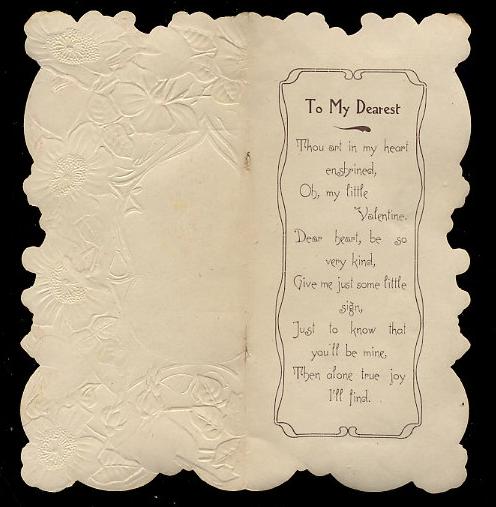 To My Dearest
Thou art in my heart
enshrined,
Oh, my little
Valentine.
Dear heart, be so
very kind,
Give me just some little
sign,
Just to know that
you'll be mine,
Then alone true joy
I'll find.